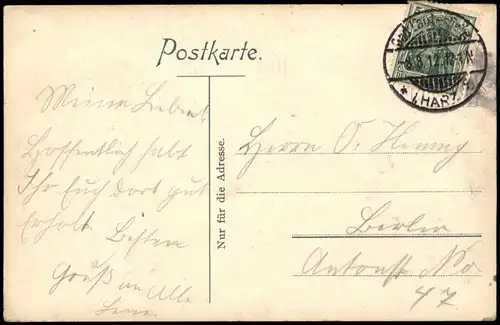 Postkarte.
Meine Lieben!
Hoffentlich habt
Ihr Euch dort gut
Erholt. Besten
Gruß an Alle
Nur für die Adresse.
Herrn O. Hennig
Berlin
Antonst No
47
* i. HARZ